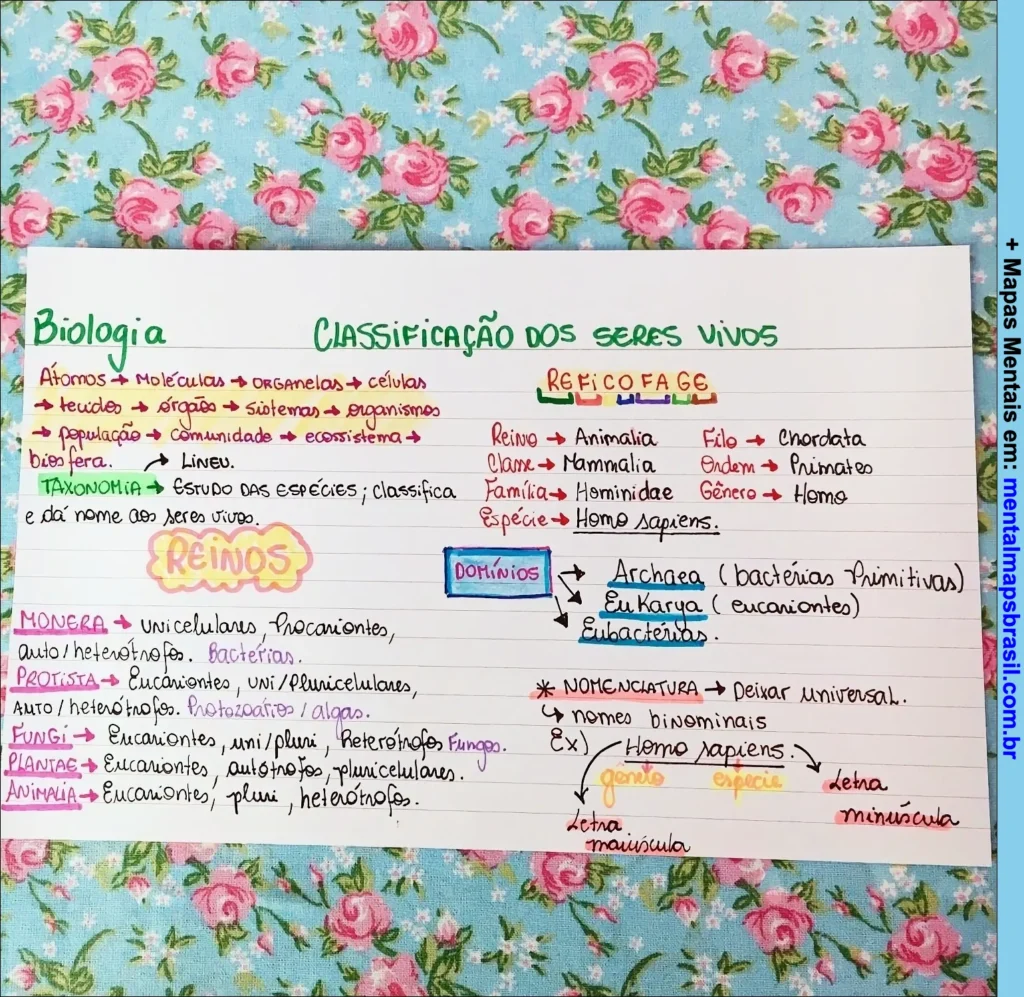 Biologia
CLASSIFICAÇÃO DOS SERES VIVOS
Átomos → Moléculas → ORGANELAS → células
→ tecidos → órgãos → Sistemas → organismos
→ população → comunidade → ecossistema →
biosfera. → LINEU.
TAXONOMIA → ESTUDO DAS ESPÉCIES; classifica
e dá nome aos seres vivos.
REFICOFAGE
Reino → Animalia Filo → Chordata
Classe → Mammalia Ordem → Primates
Família → Hominidae Gênero → Homo
Espécie → Homo sapiens.
REINOS
MONERA → unicelulares, Procariontes,
auto/heterótrofos. Bactérias.
PROTISTA → Eucariontes, uni/Pluricelulares,
AUTO/heterótrofos. Protozoários/algas.
FUNGI → Eucariontes, uni/pluri, heterótrofos Fungos.
PLANTAE → Eucariontes, autótrofos, pluricelulares.
ANIMALIA → Eucariontes, pluri, heterótrofos.
DOMÍNIOS → Archaea (bactérias Primitivas)
→ EuKarya (eucariontes)
→ Eubactérias.
* NOMENCLATURA → Deixar universal.
↳ nomes binominais
Ex) Homo sapiens.
gênero espécie
Letra maiúscula
Letra minúscula
+ Mapas Mentais em: mentalmapsbrasil.com.br